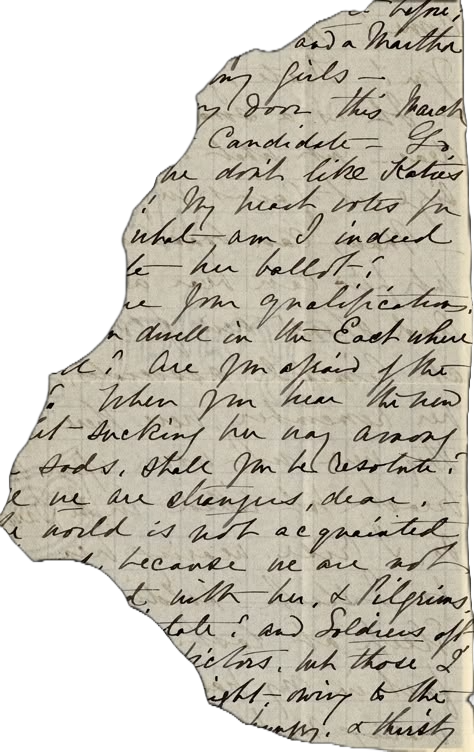 before,
and a Martha
my girls —
y door this March
Candidate — Go
we don't like Katie's
! My heart votes for
what am I indeed
her ballot?
your qualifications.
dwell in the East where
? Are you afraid of the
? When you hear the new
sucking her way among
sods, shall you be resolute?
we are strangers, dear, —
world is not acquainted
, because we are not
with her, & Pilgrims,
? and Soldiers oft
victors, but those I
owing to the
hungry, & thirsty